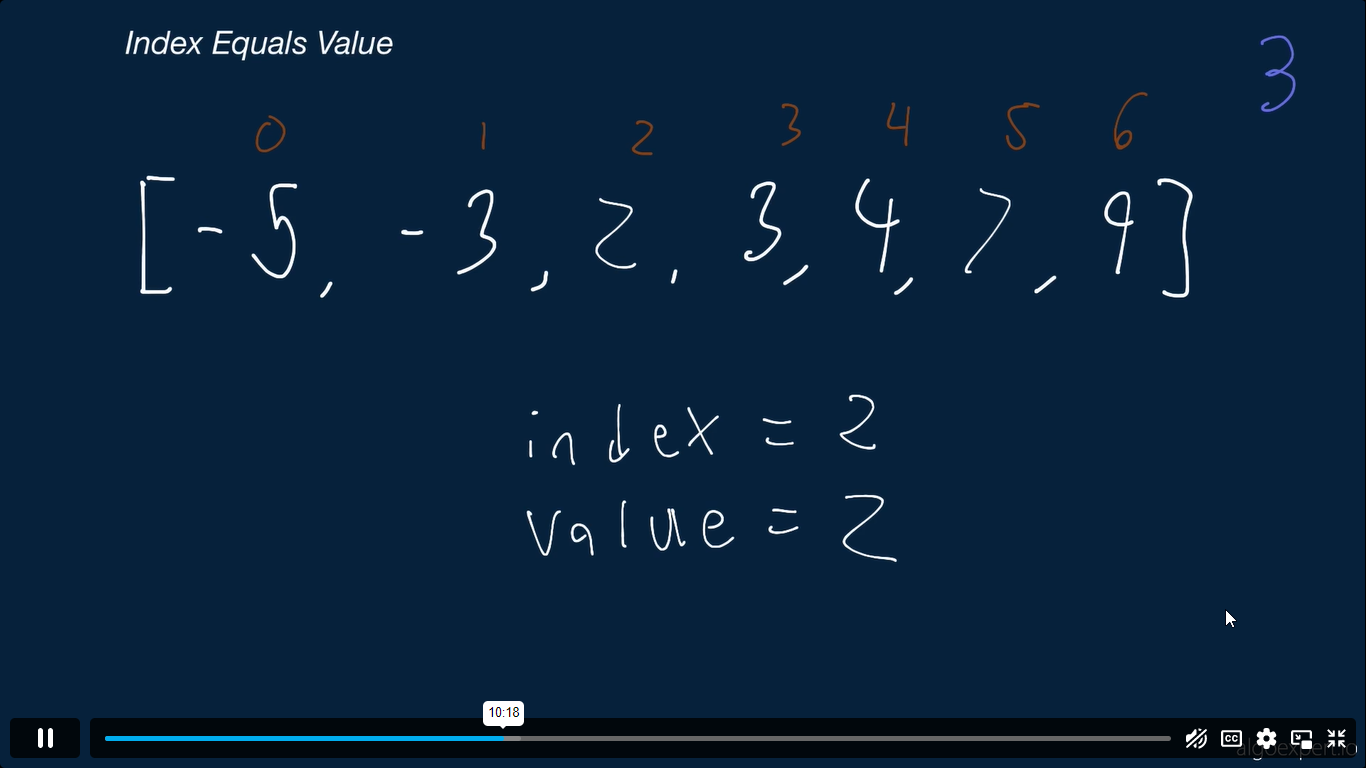 Index Equals Value
3
0 1 2 3 4 5 6
[-5, -3, 2, 3, 4, 7, 9]
index = 2
value = 2
10:18
CC
algoexpert.io